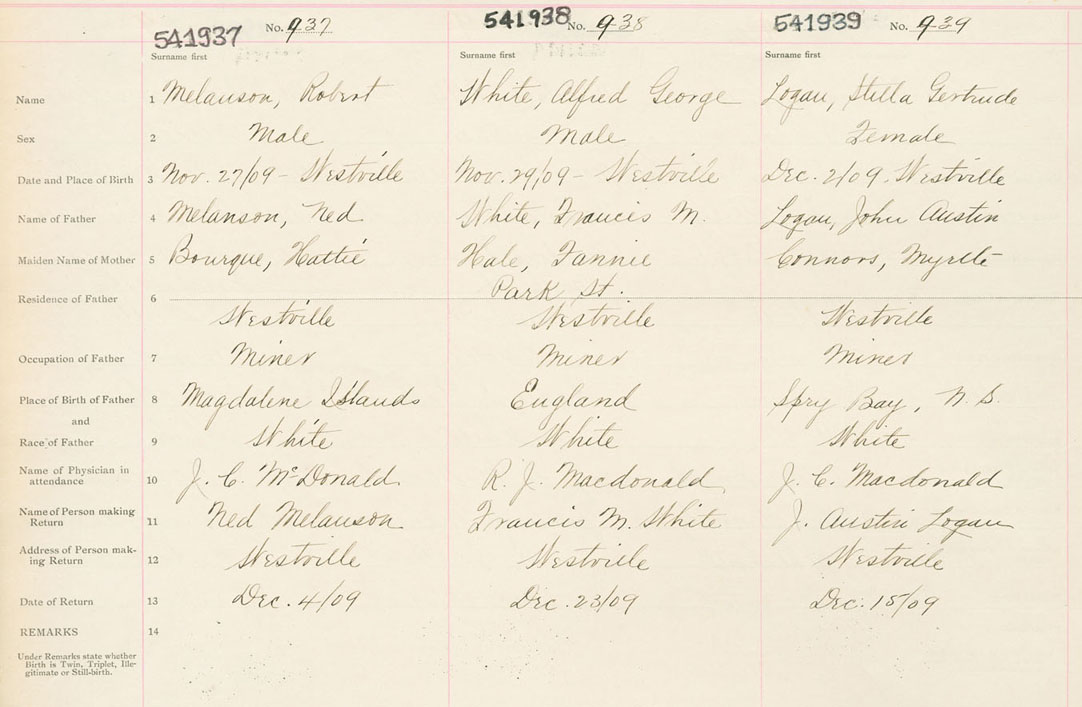 541937 No. 937 541938 No. 938 541939 No. 939
Surname first Surname first Surname first
Name 1 Melanson, Robert White, Alfred George Logan, Stella Gertrude
Sex 2 Male Male Female
Date and Place of Birth 3 Nov. 27/09 - Westville Nov. 29/09 - Westville Dec. 2/09. Westville
Name of Father 4 Melanson, Ned White, Francis M. Logan, John Austin
Maiden Name of Mother 5 Bourque, Hattie Hale, Fannie Connors, Myrtle
Park St.
Residence of Father 6
Westville Westville Westville
Occupation of Father 7 Miner Miner Miner
Place of Birth of Father 8 Magdalene Islands England Spry Bay, N. S.
and
Race of Father 9 White White White
Name of Physician in
attendance 10 J. C. McDonald. R. J. Macdonald J. C. Macdonald
Name of Person making
Return 11 Ned Melanson Francis M. White J. Austin Logan
Address of Person mak-
ing Return 12 Westville Westville Westville
Date of Return 13 Dec. 4/09 Dec. 23/09 Dec. 15/09
REMARKS 14
Under Remarks state whether
Birth is Twin, Triplet, Ille-
gitimate or Still-birth.